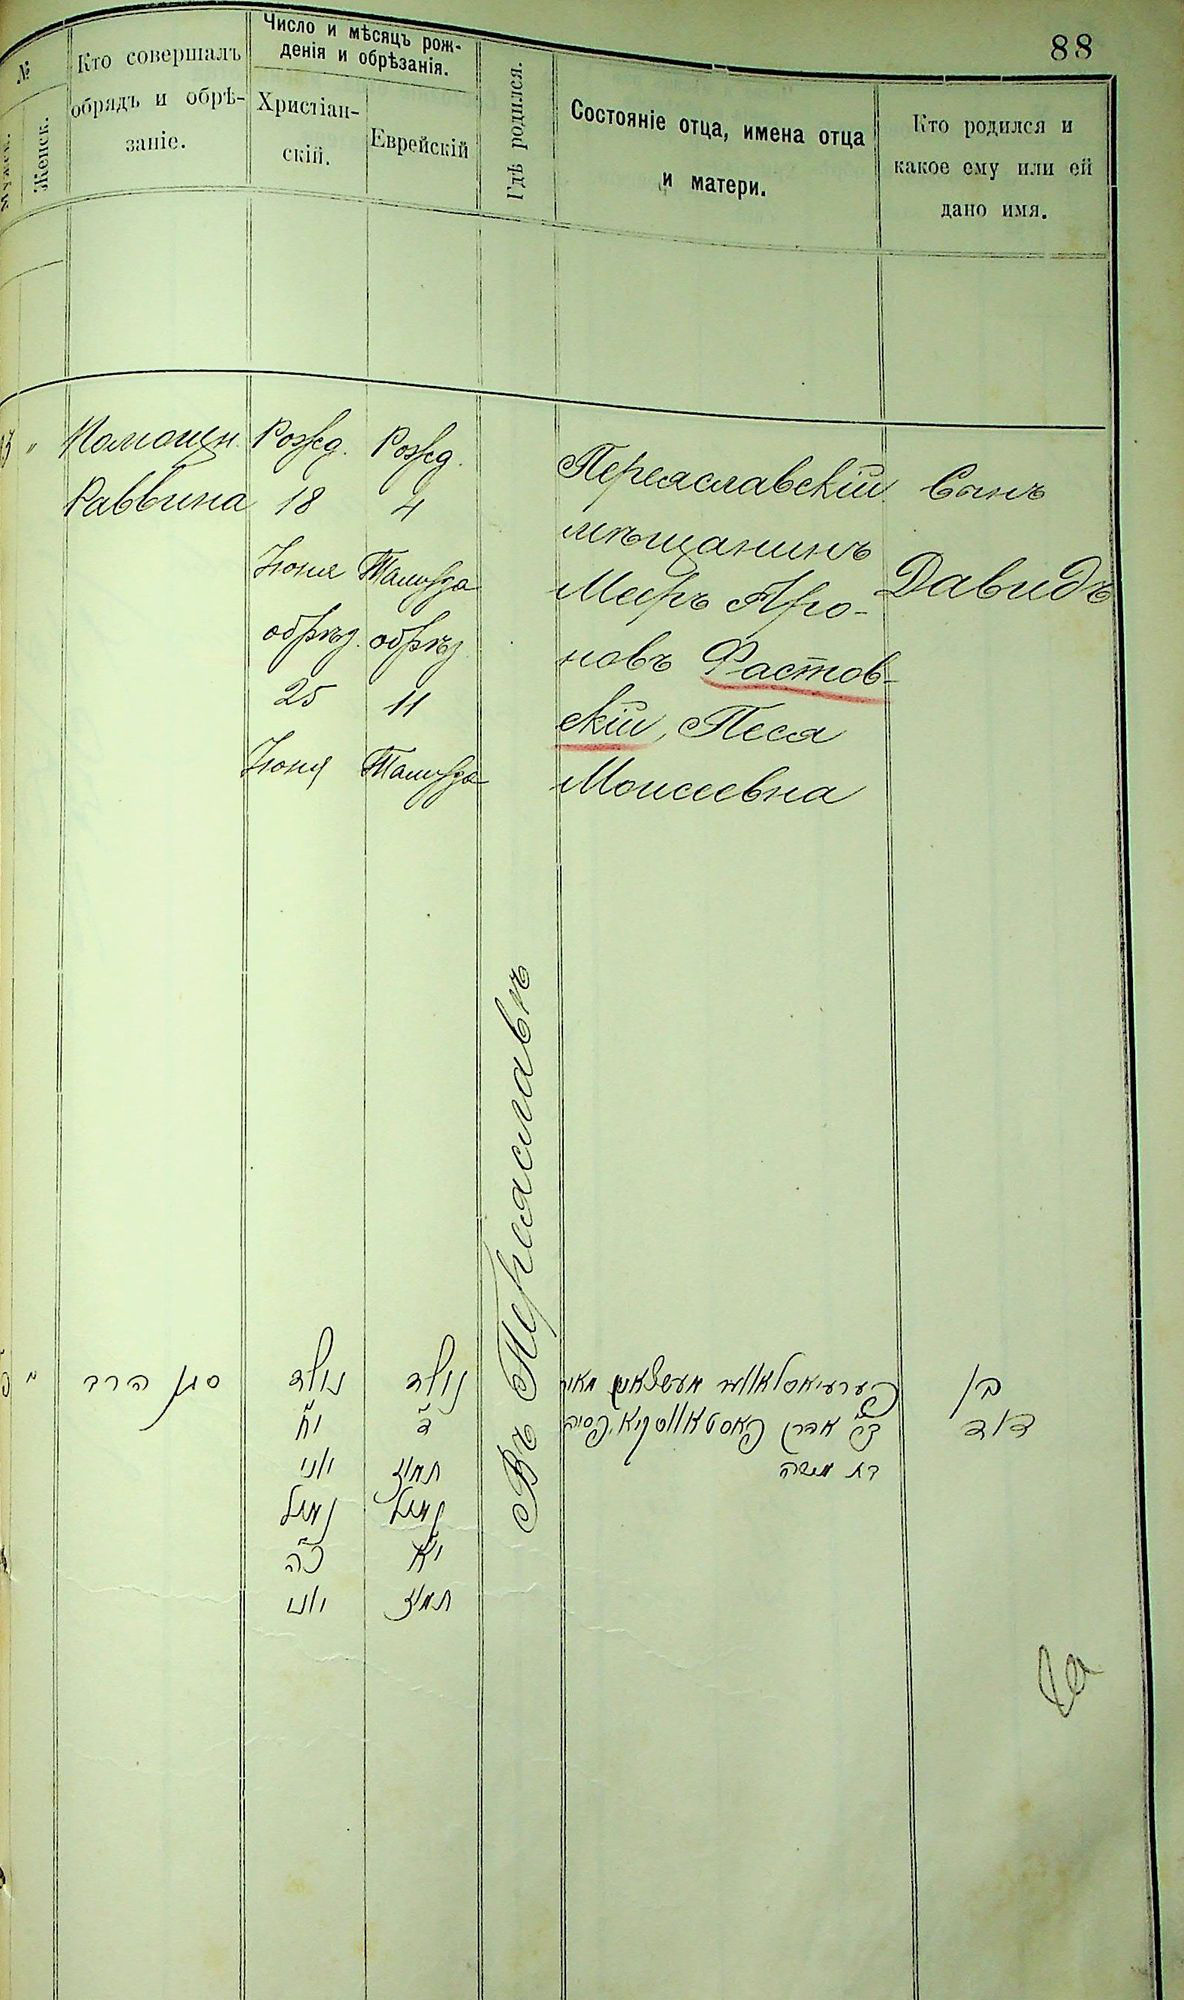 88
№
Мужск.
Женск.
Кто совершалъ
обрядъ и обрѣ-
заніе.
Число и мѣсяцъ рож-
денія и обрѣзанія.
Христіан-
скій.
Еврейскій
Гдѣ родился.
Состояніе отца, имена отца
и матери.
Кто родился и
какое ему или ей
дано имя.
"
Помощн.
Раввина
Рожд.
18
Іюня
обрѣз.
25
Іюня
Рожд.
4
Тамуза
обрѣз.
11
Тамуза
Въ Переяславѣ
Переяславскій
мѣщанинъ
Меиръ Аро-
новъ Фастов-
скій, Песя
Моисеевна
Сынъ
Давидъ
סגן הרב
נולד
י״ח
יוני
נמול
כ״ה
יוני
נולד
ד׳
תמוז
נמול
י״א
תמוז
פערעיאסלאווער מעשצאנין מאיר
ב״ר אהרן פאסטאווסקיא, פסיה
בת משה
בן
דוד